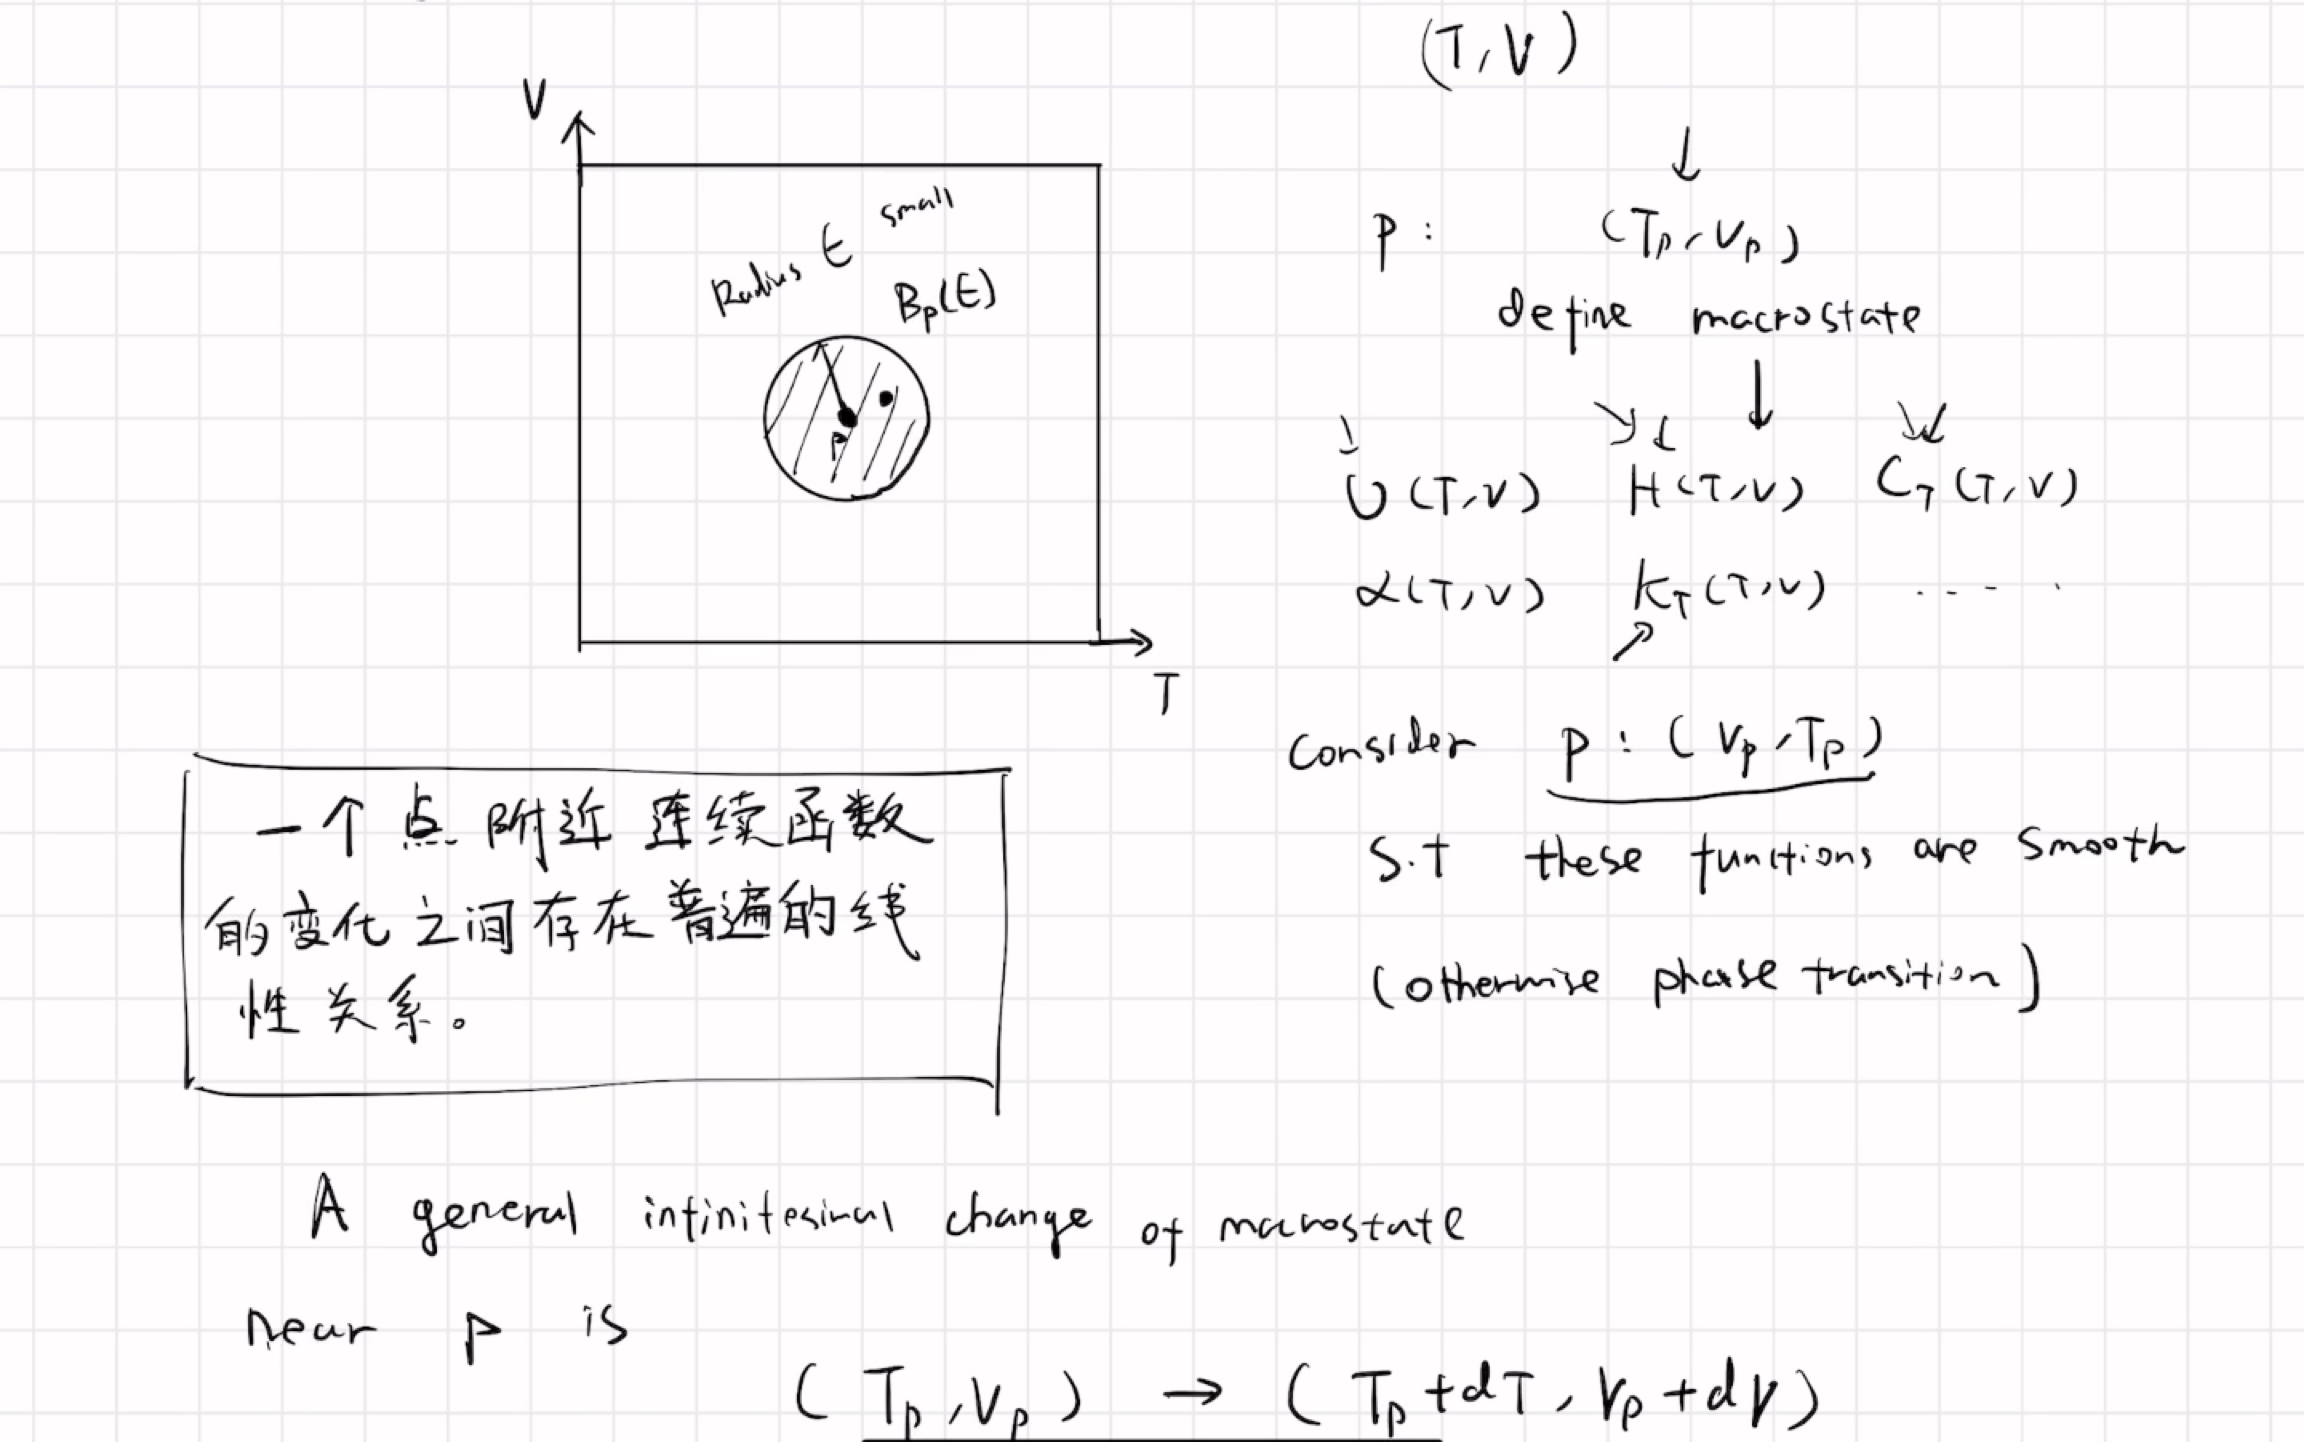 (T, V)
↓
V
Radius ϵ small
B_p(ϵ)
P
T
P : (T_p, V_p)
define macrostate
↓
U (T, V) H (T, V) C_T (T, V)
α (T, V) K_T (T, V) ·····
consider P : (V_p, T_p)
S.t these functions are smooth
(otherwise phase transition)
一个点附近连续函数
的变化之间存在普遍的线
性关系。
A general infinitesimal change of macrostate
near P is
(T_p, V_p) → (T_p + dT, V_p + dV)